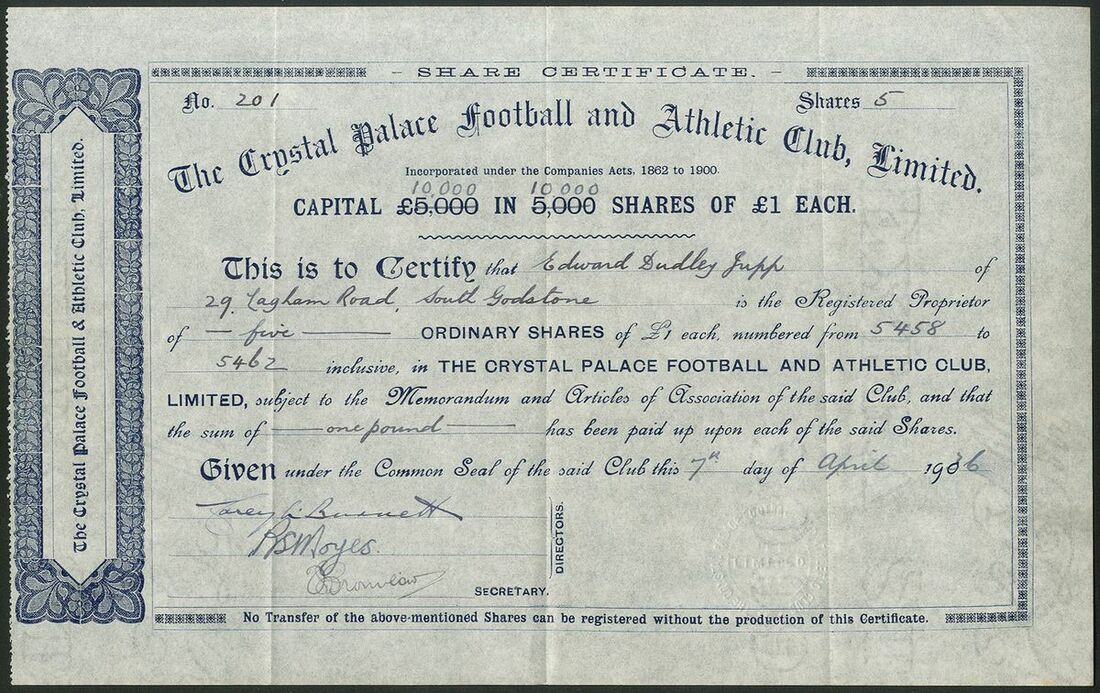 SHARE CERTIFICATE.
No. 201 Shares 5
The Crystal Palace Football and Athletic Club, Limited.
Incorporated under the Companies Acts, 1862 to 1900.
10,000 10,000
CAPITAL £5,000 IN 5,000 SHARES OF £1 EACH.
This is to Certify that Edward Dudley Jupp of
29, Lagham Road, South Godstone is the Registered Proprietor
of — five — ORDINARY SHARES of £1 each, numbered from 5458 to
5462 inclusive, in THE CRYSTAL PALACE FOOTBALL AND ATHLETIC CLUB,
LIMITED, subject to the Memorandum and Articles of Association of the said Club, and that
the sum of — one pound — has been paid up upon each of the said Shares.
Given under the Common Seal of the said Club this 7th day of April 1936
Burnett
RSMoyes.
DIRECTORS.
SECRETARY.
No Transfer of the above-mentioned Shares can be registered without the production of this Certificate.
The Crystal Palace Football & Athletic Club, Limited.
LIMITED